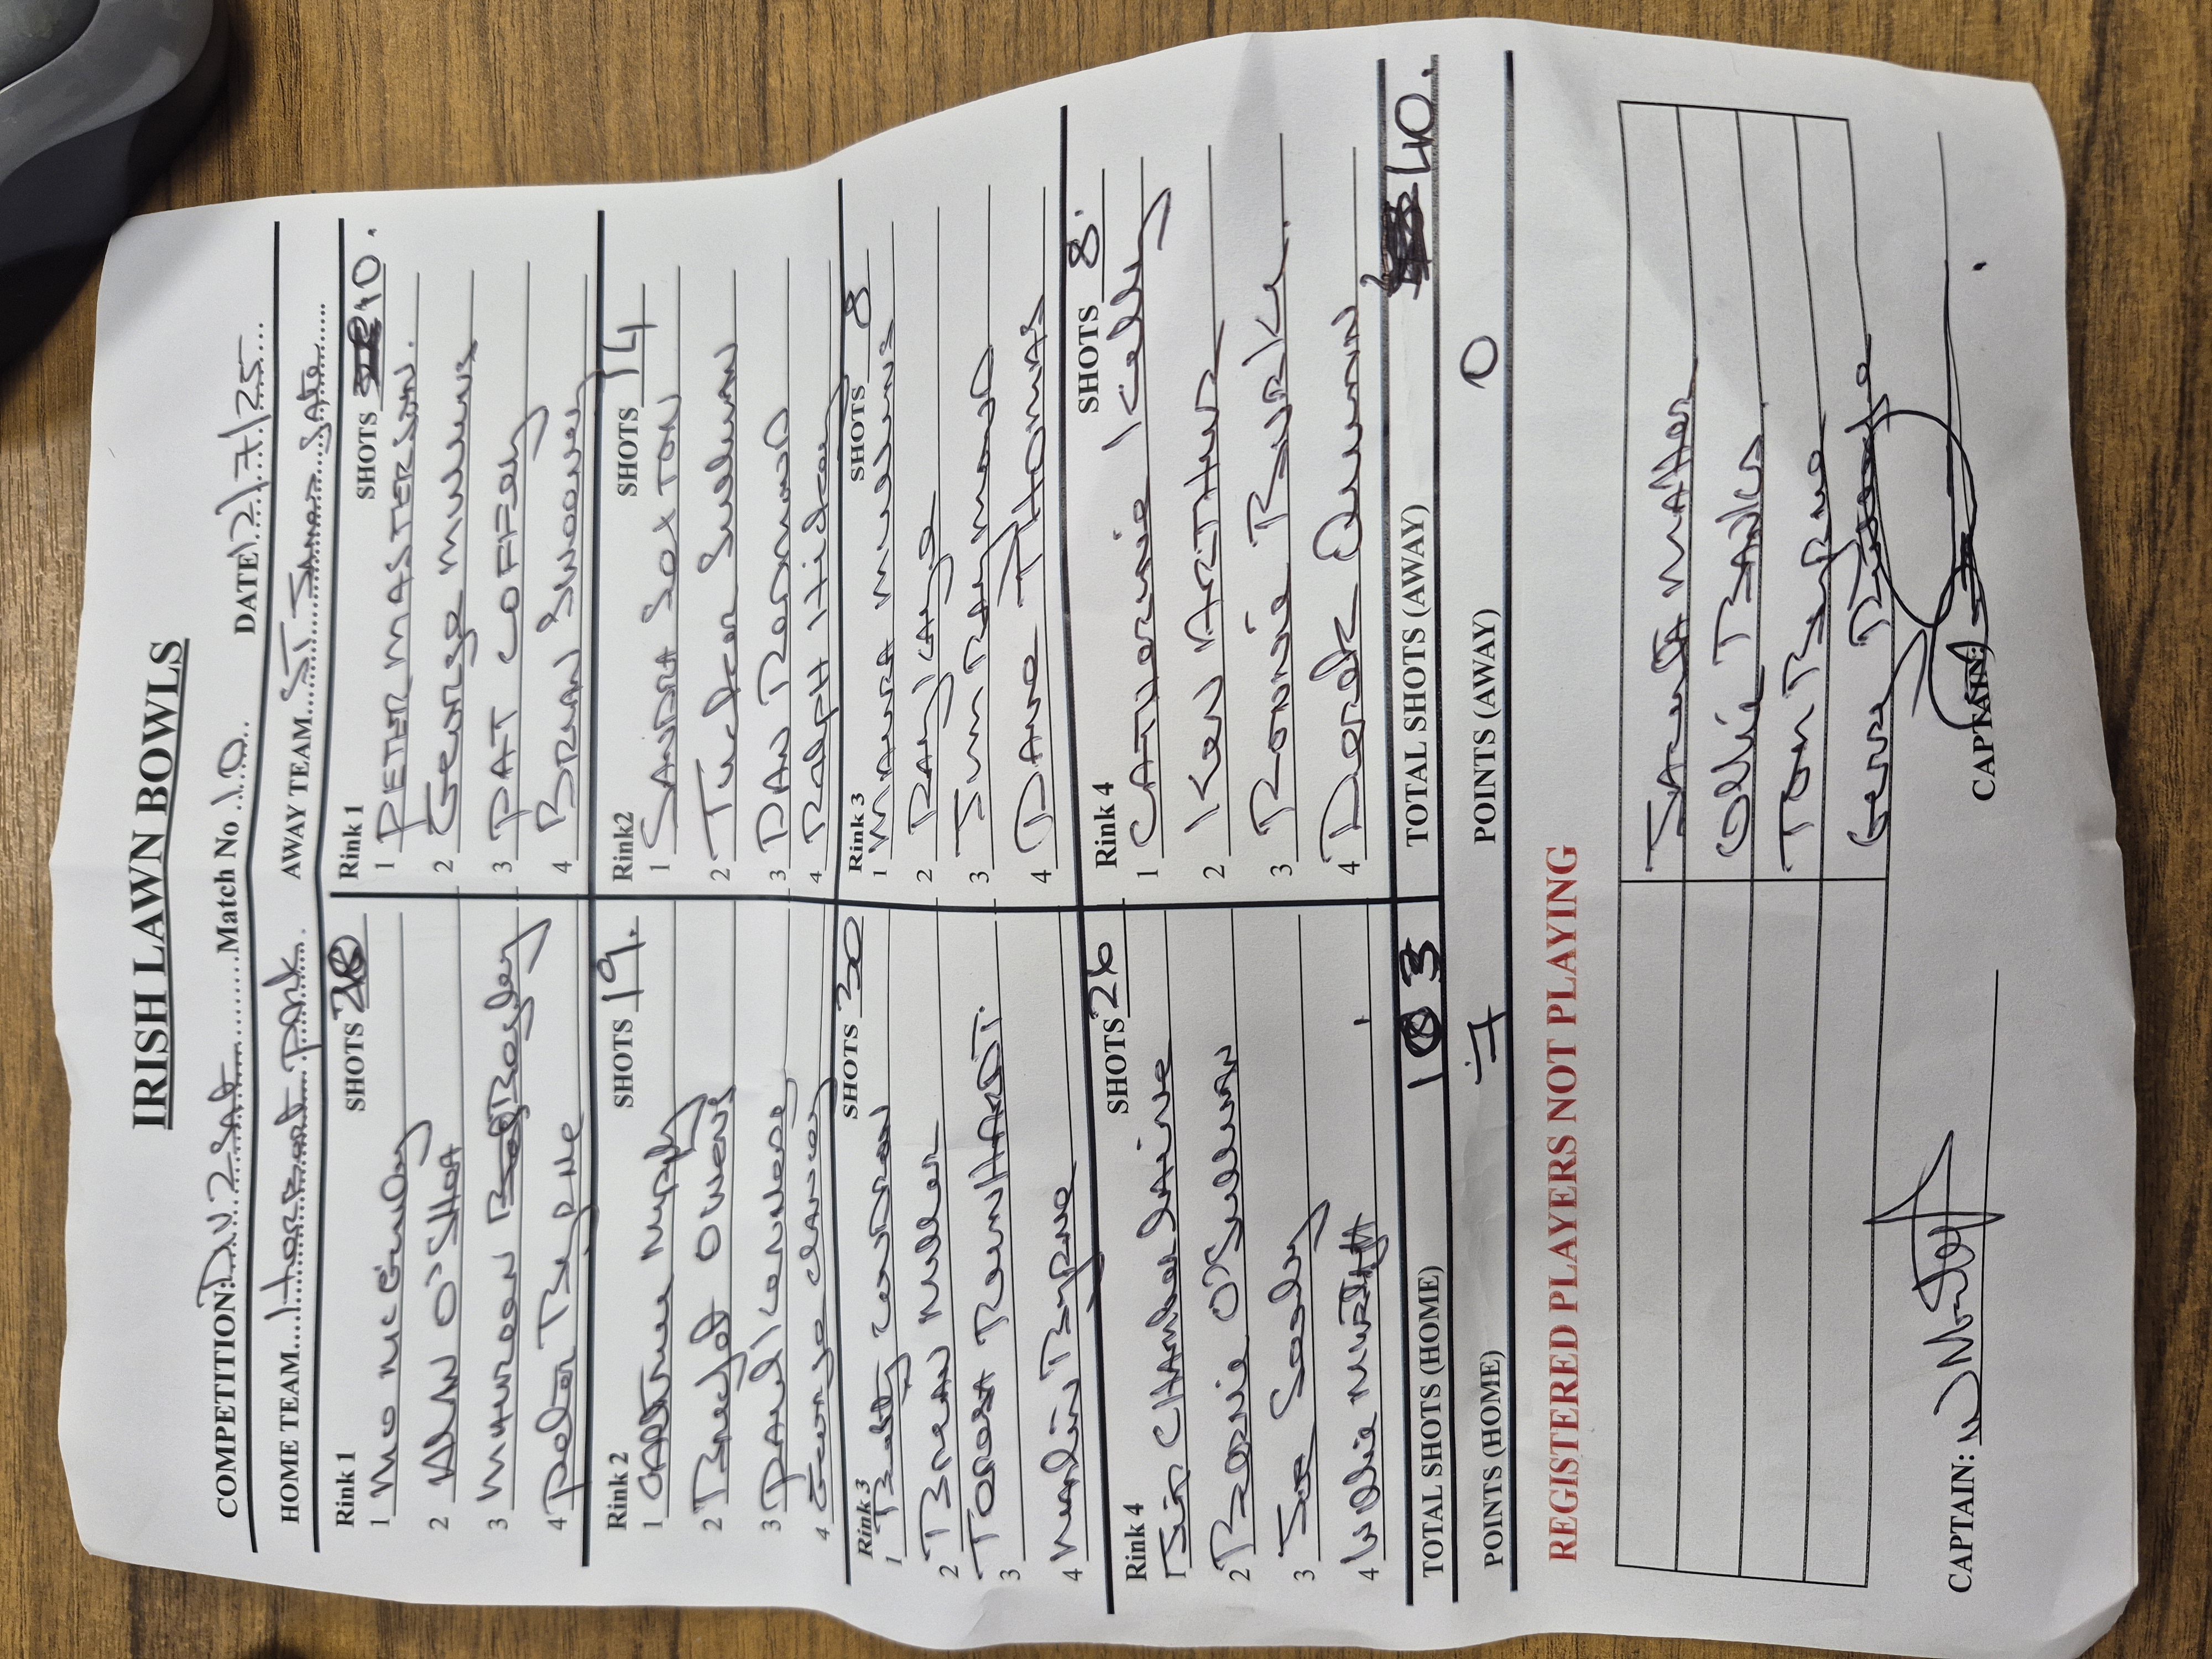 IRISH LAWN BOWLS
COMPETITION: DIV 2 SAT Match No 10 DATE 12/7/25
HOME TEAM Herbert Park AWAY TEAM ST James Gate
Rink 1 SHOTS 28
1 Mo Mc Ginley
2 O'SHEA
3 Maureen Bogley
4 Peter Byrne
Rink 1 SHOTS 10.
1 PETER MASTERSON.
2 George Mullins
3 PAT COFFey
4 BRIAN Sweeney
Rink 2 SHOTS 19.
1 Murphy
2 OWENS
3 Paul
4 George Clancy
Rink2 SHOTS 14
1 SANDRA SEXTON
2 Tucker Sullivan
3 DAN Redmond
4 Ralph Hickey
Rink 3 SHOTS 30
1 Betty CONDRON
2 BRIAN Miller
3 REINHARDT.
4 Martin Byrne
Rink 3 SHOTS 8
1 MAURA Mullins
2 Ray Cane
3 Jim Raymond
4 Dave THOMAS
Rink 4 SHOTS 26
1 CHAMBERLAINE
2 Bernie O'Sullivan
3 Joe Sealy
4 Willie MURTAGH
Rink 4 SHOTS 8.
1 CATHERINE Kelly
2 Ken ARTHUR
3 Ronnie Burke.
4 Derek Quinn
TOTAL SHOTS (HOME) 103 TOTAL SHOTS (AWAY) 40.
POINTS (HOME) 7 POINTS (AWAY) 0
REGISTERED PLAYERS NOT PLAYING
MAHER
Ollie
Tom Byrne
Gerry
CAPTAIN: CAPTAIN: